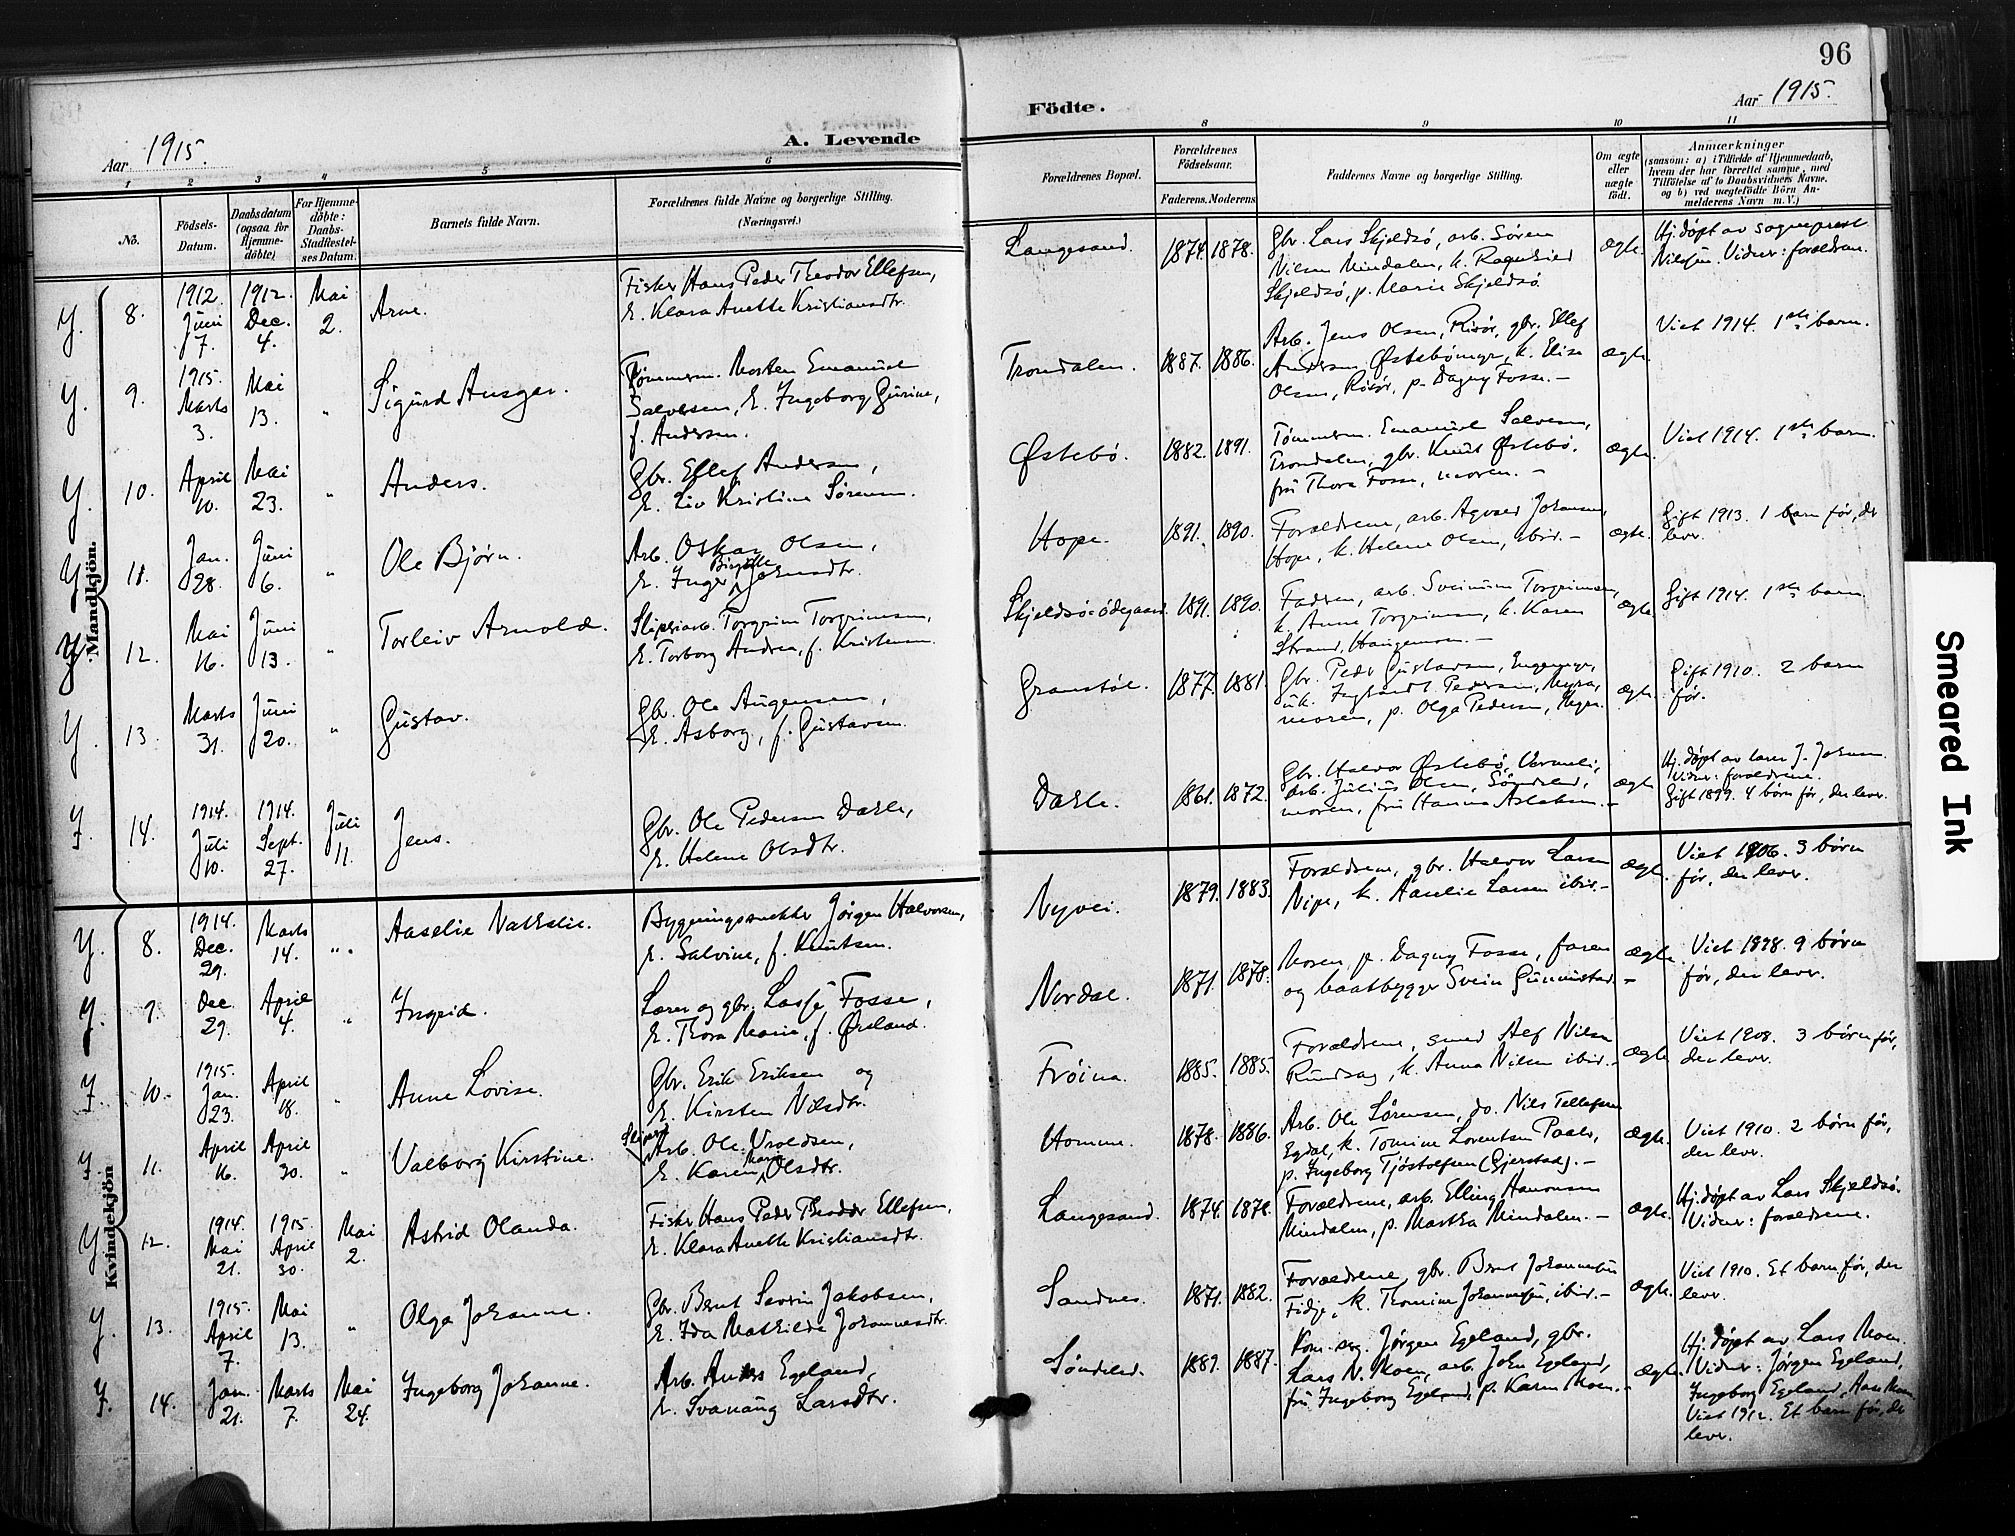 96
Aar 1915.
A. Levende
Födte.
Aar 1915.
1 2 3 4 5 6 8 9 10 11
No.
Födsels-
Datum.
Daabsdatum
(ogsaa for
Hjemme-
döbte)
For Hjemme-
döbte:
Daabs-
Stadfæstel-
ses Datum.
Barnets fulde Navn.
Forældrenes fulde Navne og borgerlige Stilling.
(Næringsvei.)
Forældrenes Bopæl.
Forældrenes
Födselsaar.
Faderens. Moderens
Faddernes Navne og borgerlige Stilling.
Om ægte
eller
uægte
födt.
Anmærkninger
(saasom: a) i Tilfælde af Hjemmedaab,
hvem der har forrettet samme, med
Tilföielse af to Daabsvidners Navne.
og b) ved uægtefödte Börn An-
melderens Navn m. V.)
Mandkjön.
Y. 8. 1912. Juni 7. 1912. Dec. 4. Mai 2. Arne.
Fisker Hans Peder Theodor Ellefsen,
E. Klara Anette Kristiansdtr.
Langesand. 1874. 1878.
Gbr. Lars Skjeldsø, arb. Søren
Nilsen Mindalen, k. Ragnhild
Skjeldsø, p. Marie Skjeldsø.
ægte.
Hj.døpt av sogneprest
Nilssen. Vidner: forældrene.
Y. 9. 1915. Marts 3. Mai 13. " Sigurd Ansgar.
Tømmerm. Morten Emanuel
Salvesen, E. Ingeborg Gurine,
f. Andersen.
Trondalen. 1887. 1886.
Arb. Jens Olsen, Risør, gbr. Ellef
Andersen Østebømyr, k. Elise
Olsen, Risør, p. Dagny Fosse. –
ægte.
Viet 1914. 1ste barn.
Y. 10. April 10. Mai 23. " Anders.
Gbr. Ellef Andersen,
E. Liv Kristine Sørensen.
Østebø. 1882. 1891.
Tømmerm. Emanuel Salvesen,
Trondalen, gbr. Knut Østebø,
fru Thora Fosse, moren. –
ægte.
Viet 1914. 1ste barn.
Y. 11. Jan. 28. Juni 6. " Ole Bjørn.
Arb. Oskar Olsen,
E. Inger Birgitte Johnsdtr.
Hope. 1891. 1890.
Forældrene, arb. Agvald Johansen,
Hope, k. Helene Olsen, ibid. –
ægte.
Gift 1913. 1 barn før, der
lever.
Y. 12. Mai 16. Juni 13. " Torleiv Arnold.
Sliperiarb. Torgrim Torgrimsen,
E. Torborg Andrea, f. Kristensen.
Skjeldsø:ødegaard. 1891. 1890.
Fadren, arb. Sveinum Torgrimsen,
k. Anne Torgrimsen, k. Karen
Strand, Haugemoen. –
ægte.
Gift 1914. 1ste barn
Y. 13. Marts 31. Juni 20. " Gustav.
Gbr. Ole Augensen,
E. Asborg, f. Gustavsen.
Granstøl. 1877. 1881.
Gbr. Peder Gustavsen, Engemyr,
moren, p. Olga Pedersen,
ægte.
Gift 1910. 2 barn
før.
Y. 14. 1914. Juli 10. 1914. Sept. 27. Juli 11. Jens.
Gbr. Ole Pedersen Dasle,
E. Helene Olsdtr.
Dasle. 1861. 1872.
Gbr. Halvor Østebø, Varmeli,
arb. Julius Olsen, Søndeled,
moren, fru Hanna Aslaksen. –
ægte
Hj.døpt av lærer J. Johnsen
Vidner: forældrene.
Gift 1899. 4 børn før, der lever.
Kvindekjön
Y. 8. 1914. Dec. 29. Marts 14. " Aaselie Nathalie.
Bygningssnekker Jørgen Halvorsen,
E. Salvine, f. Knutsen.
Nyvei. 1879. 1883.
Forældrene, gbr. Halvor Larsen
Nipe, k. Aaselie Larsen ibid. –
ægte.
Viet 1906. 3 børn
før, der lever.
Y. 9. Dec. 29. April 4. " Ingrid.
Lærer og gbr. Lasse Fosse,
E. Thora Marie, f. Ørsland.
Nordal. 1871. 1878.
Moren, p. Dagny Fosse, faren
og baatbygger Svein Gunmistad. –
ægte.
Viet 1898. 9 børn
før, der lever.
Y. 10. 1915. Jan. 23. April 18. " Anne Lovise.
Gbr. Erik Eriksen og
E. Kirsten Nilsdtr.
Frøina. 1885. 1885.
Forældrene, smed Alf Nilsen
Rundsag, k. Anna Nilsen ibid. –
ægte
Viet 1908. 3 børn før,
der lever.
Y. 11. April 16. April 30. " Valborg Kirstine.
Sliperi Arb. Ole Vroldsen,
E. Karen Marie Olsdtr.
Homme. 1878. 1886.
Arb. Ole Sørensen, do. Nils Tellefsen
Egdal, k. Tomine Lorentsen Paalv,
p. Ingeborg Tjøstolfsen (Gjerstad). –
ægte.
Viet 1910. 2 børn før,
der lever.
Y. 12. 1914. Mai 21. 1915. April 30. Mai 2. Astrid Olanda.
Fisker Hans Peder Theodor Ellefsen,
E. Klara Anette Kristiansdtr.
Langesand. 1874. 1878.
Forældrene, arb. Elling Aanonsen
Mindalen, p. Martha Mindalen. –
ægte.
Hj.døpt av Lars Skjeldsø.
Vidner: forældrene.
Y. 13. 1915. April 7. Mai 13. " Olga Johanne.
Gbr. Bernt Severin Jakobsen,
E. Ida Mathilde Johannesdtr.
Sandnes. 1871. 1882.
Forældrene, gbr. Bernt Johannessen
Fidje, k. Thomine Johannessen, ibid. –
ægte.
Viet 1910. Et barn før, der
lever.
Y. 14. Jan. 21. Marts 7. Mai 24. Ingeborg Johanne.
Arb. Anders Egeland,
E. Svanaug Larsdtr.
Søndeled. 1889. 1887.
Kom. erg. Jørgen Egeland, gbr.
Lars N. Moen, arb. John Egeland,
fru Ingeborg Egeland, p. Karen Moen. –
ægte.
Hj.døpt av Lars Moen.
Vidner: Jørgen Egeland,
Ingeborg Egeland, Aase Moen
Viet 1912. Et barn før, der
lever.
Smeared Ink